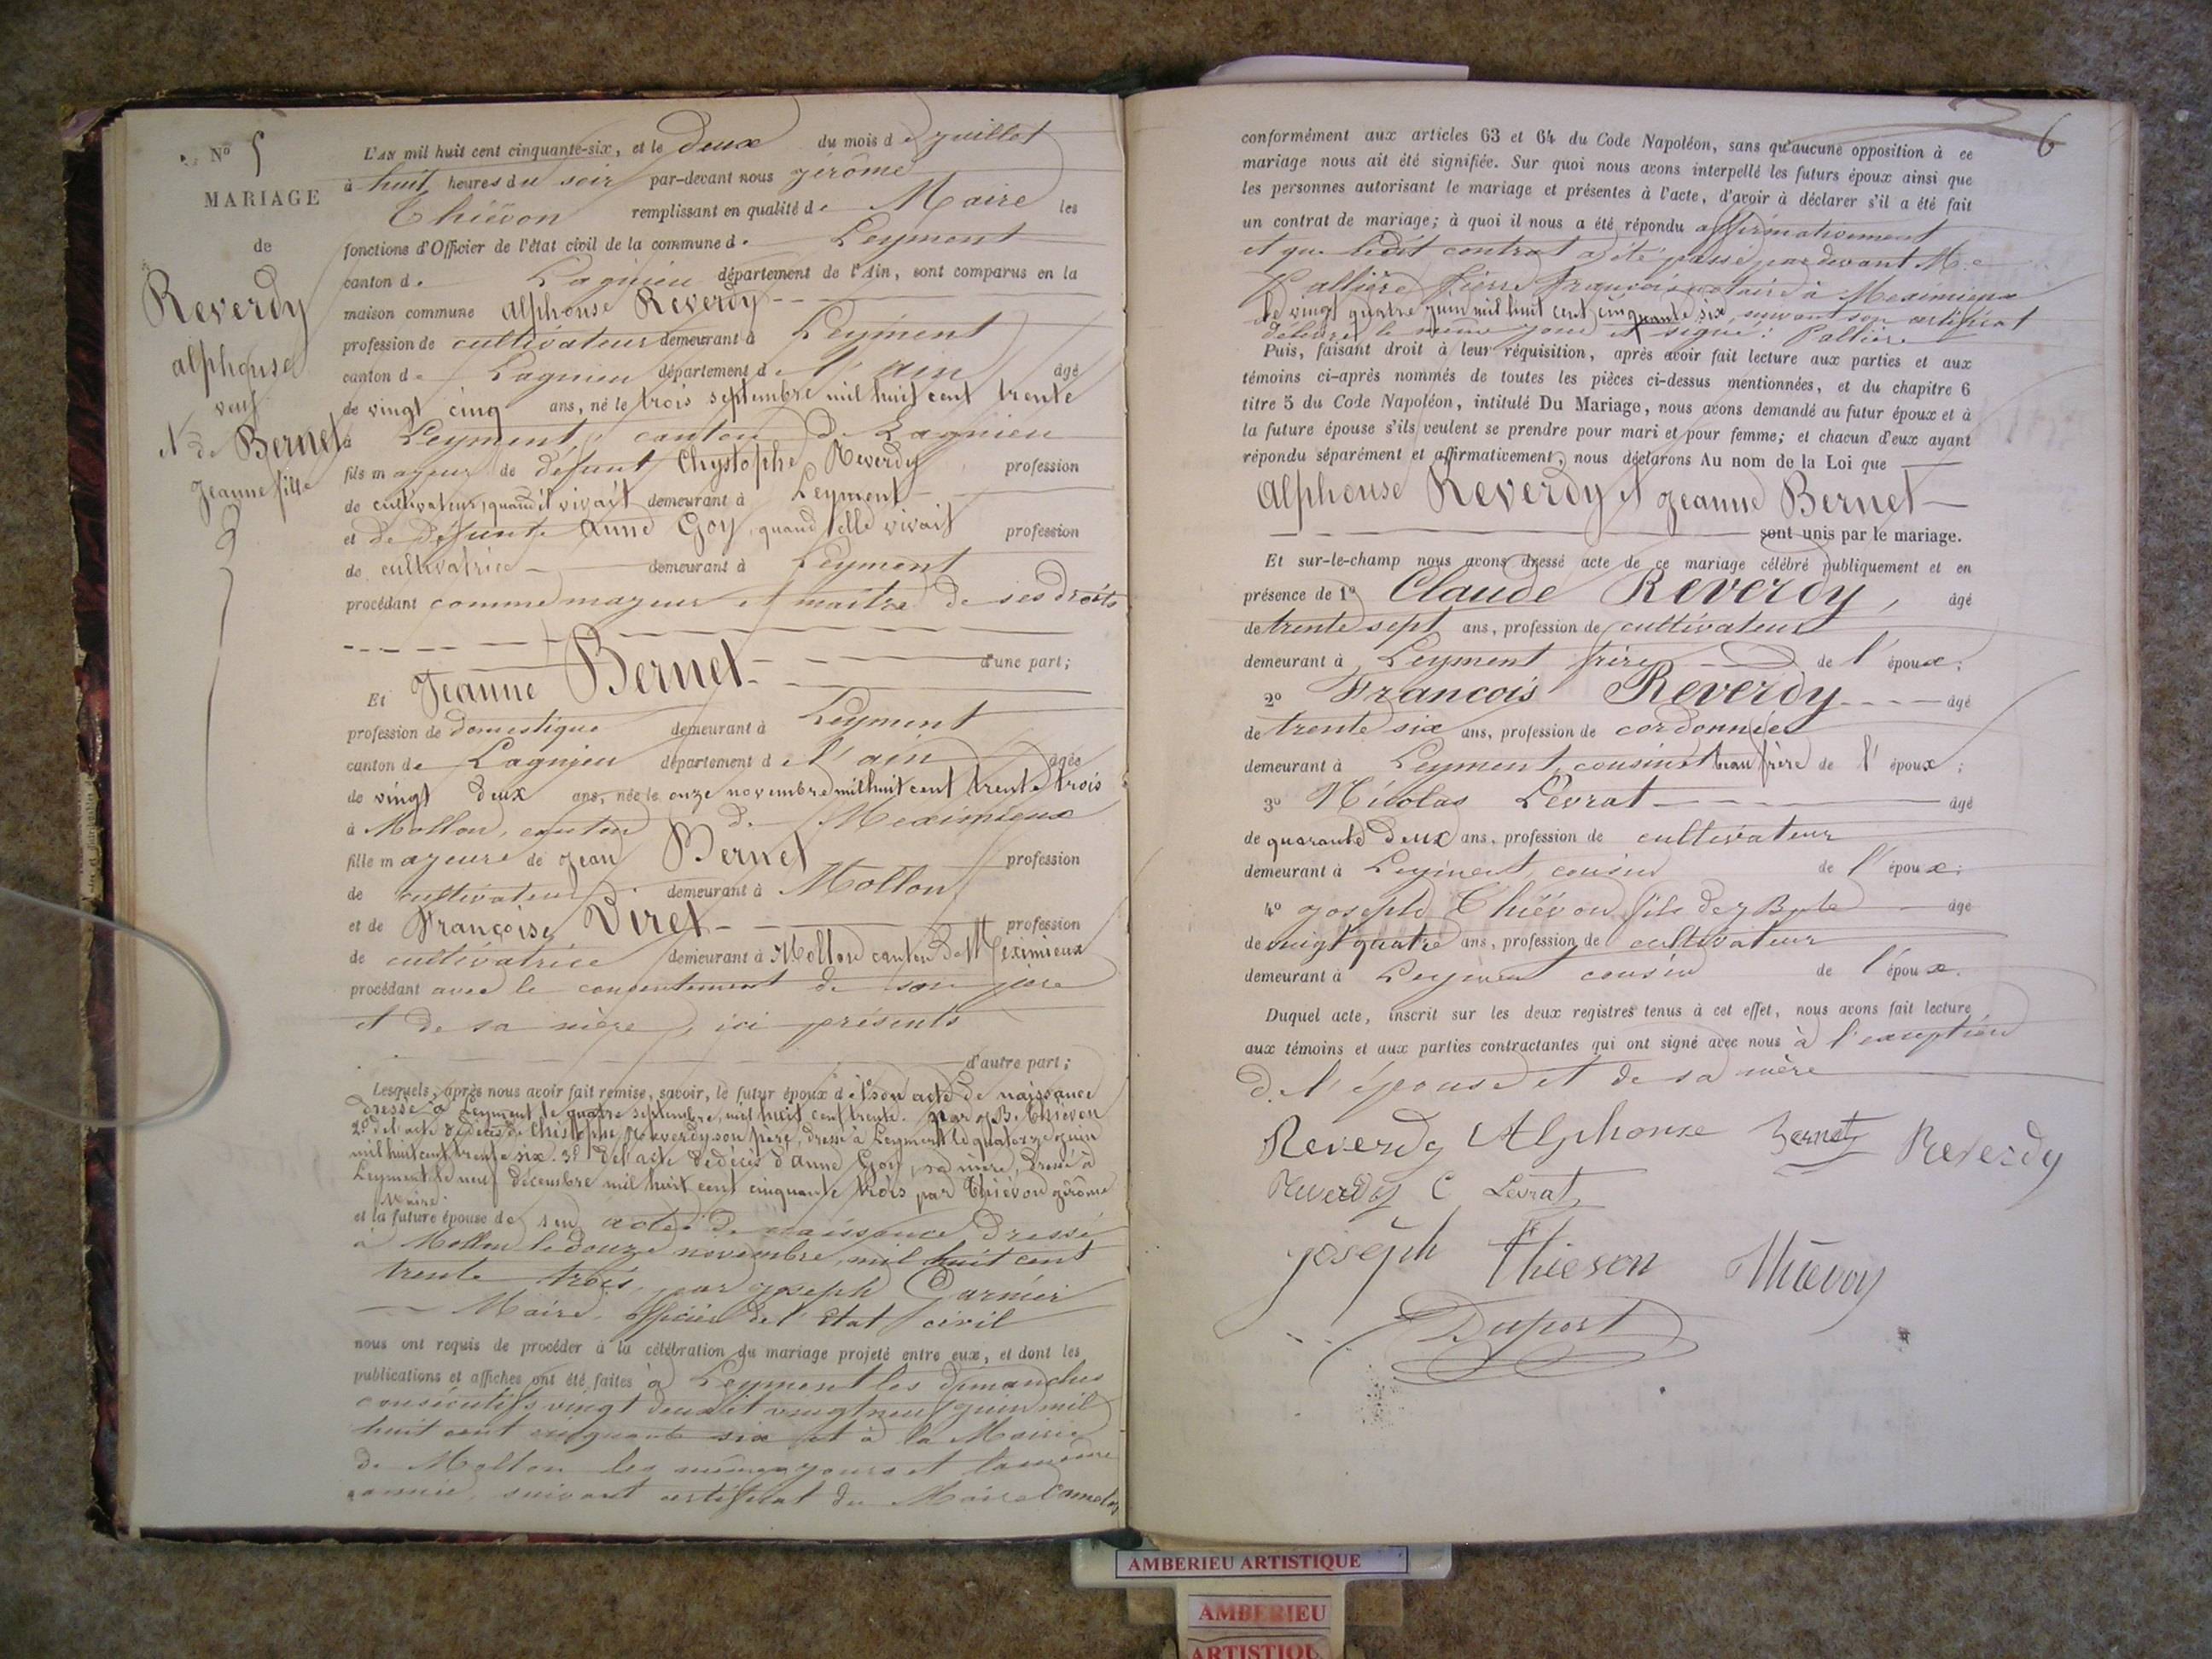 N° 5
MARIAGE
de
Reverdy
alphonse
veuf
N de Bernet
Jeanne fille
L'AN mil huit cent cinquante-six, et le deux du mois de juillet
à huit heures du soir par-devant nous jérôme
Thiévon remplissant en qualité de Maire les
fonctions d'Officier de l'état civil de la commune de Leyment
canton de Lagnieu département de l'Ain, sont comparus en la
maison commune alphonse Reverdy
profession de cultivateur demeurant à Leyment
canton de Lagnieu département de l'ain âgé
de vingt cinq ans, né le trois septembre mil huit cent trente
à Leyment, canton de Lagnieu
fils mayeur de défunt Chystophe Reverdy profession
de cultivateur, quand il vivait demeurant à Leyment
et de défunte anne Goy, quand elle vivait profession
de cultivatrice demeurant à Leyment
procédant comme mayeur et maître de ses droits
d'une part;
Et Jeanne Bernet
profession de domestique demeurant à Leyment
canton de Lagnieu département de l'ain âgée
de vingt deux ans, née le onze novembre mil huit cent trente trois
à Mollon, canton de Meximieux
fille mayeure de jean Bernet profession
de cultivateur demeurant à Mollon,
et de Françoise Viret profession
de cultivatrice demeurant à Mollon canton de Meximieux
procédant avec le consentement de son père
et de sa mère, ici présents
d'autre part;
Lesquels, après nous avoir fait remise, savoir, le futur époux de 1° son acte de naissance
dressé à Leyment le quatre septembre, mil huit cent trente. par j. B. Thiévon
2° de l'acte de décès de Christophe Reverdy son père, dressé à Leyment le quatorze juin
mil huit cent trente six. 3° de l'acte de décès d'anne Goy, sa mère, dressé à
Leyment le neuf décembre mil huit cent cinquante trois par Thiévon jérôme
Maire
et la future épouse de son acte de naissance dressé
à Mollon le douze novembre, mil huit cent
trente trois, par joseph Garnier
Maire, officier de l'Etat civil
nous ont requis de procéder à la célébration du mariage projeté entre eux, et dont les
publications et affiches ont été faites à Leyment les dimanches
consécutifs vingt deux et vingt neuf juin mil
huit cent cinquante six et à la Mairie
de Mollon les mêmes jours et la même
année, suivant certificat du Maire
6
conformément aux articles 63 et 64 du Code Napoléon, sans qu'aucune opposition à ce
mariage nous ait été signifiée. Sur quoi nous avons interpellé les futurs époux ainsi que
les personnes autorisant le mariage et présentes à l'acte, d'avoir à déclarer s'il a été fait
un contrat de mariage; à quoi il nous a été répondu affirmativement
et que ledit contrat a été passé par devant Me
Pallière Pierre François notaire à Meximieux
le vingt quatre juin mil huit cent cinquante six suivant son certificat
délivré le même jour et signé: Pallière
Puis, faisant droit à leur réquisition, après avoir fait lecture aux parties et aux
témoins ci-après nommés de toutes les pièces ci-dessus mentionnées, et du chapitre 6
titre 5 du Code Napoléon, intitulé Du Mariage, nous avons demandé au futur époux et à
la future épouse s'ils veulent se prendre pour mari et pour femme; et chacun d'eux ayant
répondu séparément et affirmativement, nous déclarons Au nom de la Loi que
alphonse Reverdy et jeanne Bernet
sont unis par le mariage.
Et sur-le-champ nous avons dressé acte de ce mariage célébré publiquement et en
présence de 1° Claude Reverdy, âgé
de trente sept ans, profession de cultivateur
demeurant à Leyment frère de l'époux;
2° Francois Reverdy âgé
de trente six ans, profession de cordonnier
demeurant à Leyment, cousin et beau frère de l'époux;
3° Nicolas Levrat âgé
de quarante deux ans, profession de cultivateur
demeurant à Leyment, cousin de l'époux;
4° joseph Thiévon fils de j Bte âgé
de vingt quatre ans, profession de cultivateur
demeurant à Leyment cousin de l'époux.
Duquel acte, inscrit sur les deux registres tenus à cet effet, nous avons fait lecture
aux témoins et aux parties contractantes qui ont signé avec nous à l'exception
de l'épouse et de sa mère
Reverdy Alphonse Bernet Reverdy
Reverdy C Levrat
joseph Thievon Thievon
Duport
AMBERIEU ARTISTIQUE
AMBERIEU
ARTISTIQU